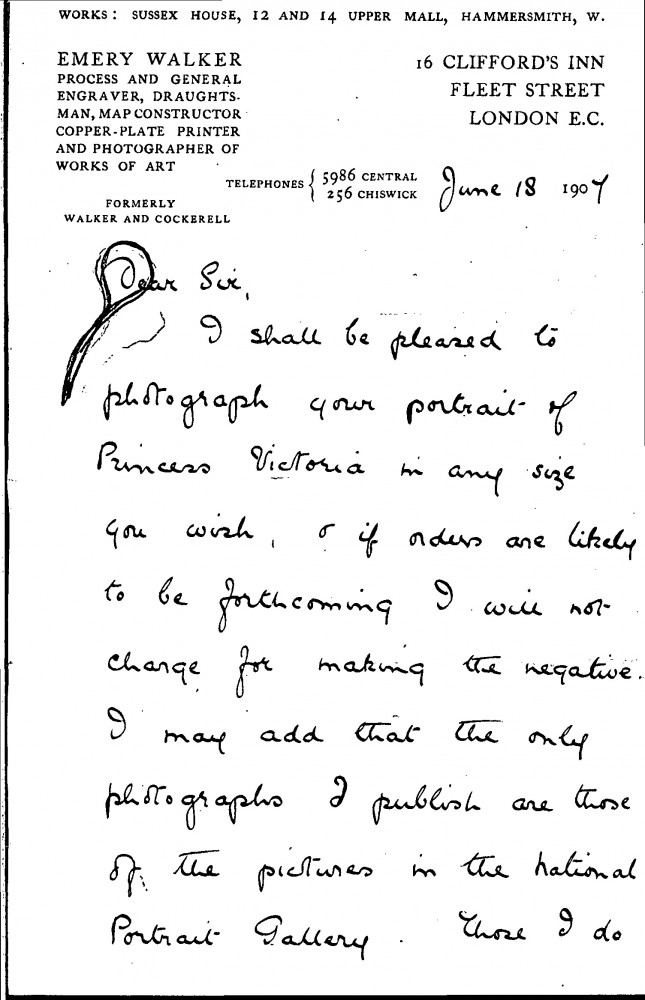 WORKS: SUSSEX HOUSE, 12 AND 14 UPPER MALL, HAMMERSMITH, W.
EMERY WALKER
PROCESS AND GENERAL
ENGRAVER, DRAUGHTS-
MAN, MAP CONSTRUCTOR
COPPER-PLATE PRINTER
AND PHOTOGRAPHER OF
WORKS OF ART
FORMERLY
WALKER AND COCKERELL
16 CLIFFORD'S INN
FLEET STREET
LONDON E.C.
TELEPHONES { 5986 CENTRAL
256 CHISWICK
June 18 1907
Dear Sir,
I shall be pleased to
photograph your portrait of
Princess Victoria in any size
you wish, & if orders are likely
to be forthcoming I will not
charge for making the negative.
I may add that the only
photographs I publish are those
of the pictures in the National
Portrait Gallery. Those I do